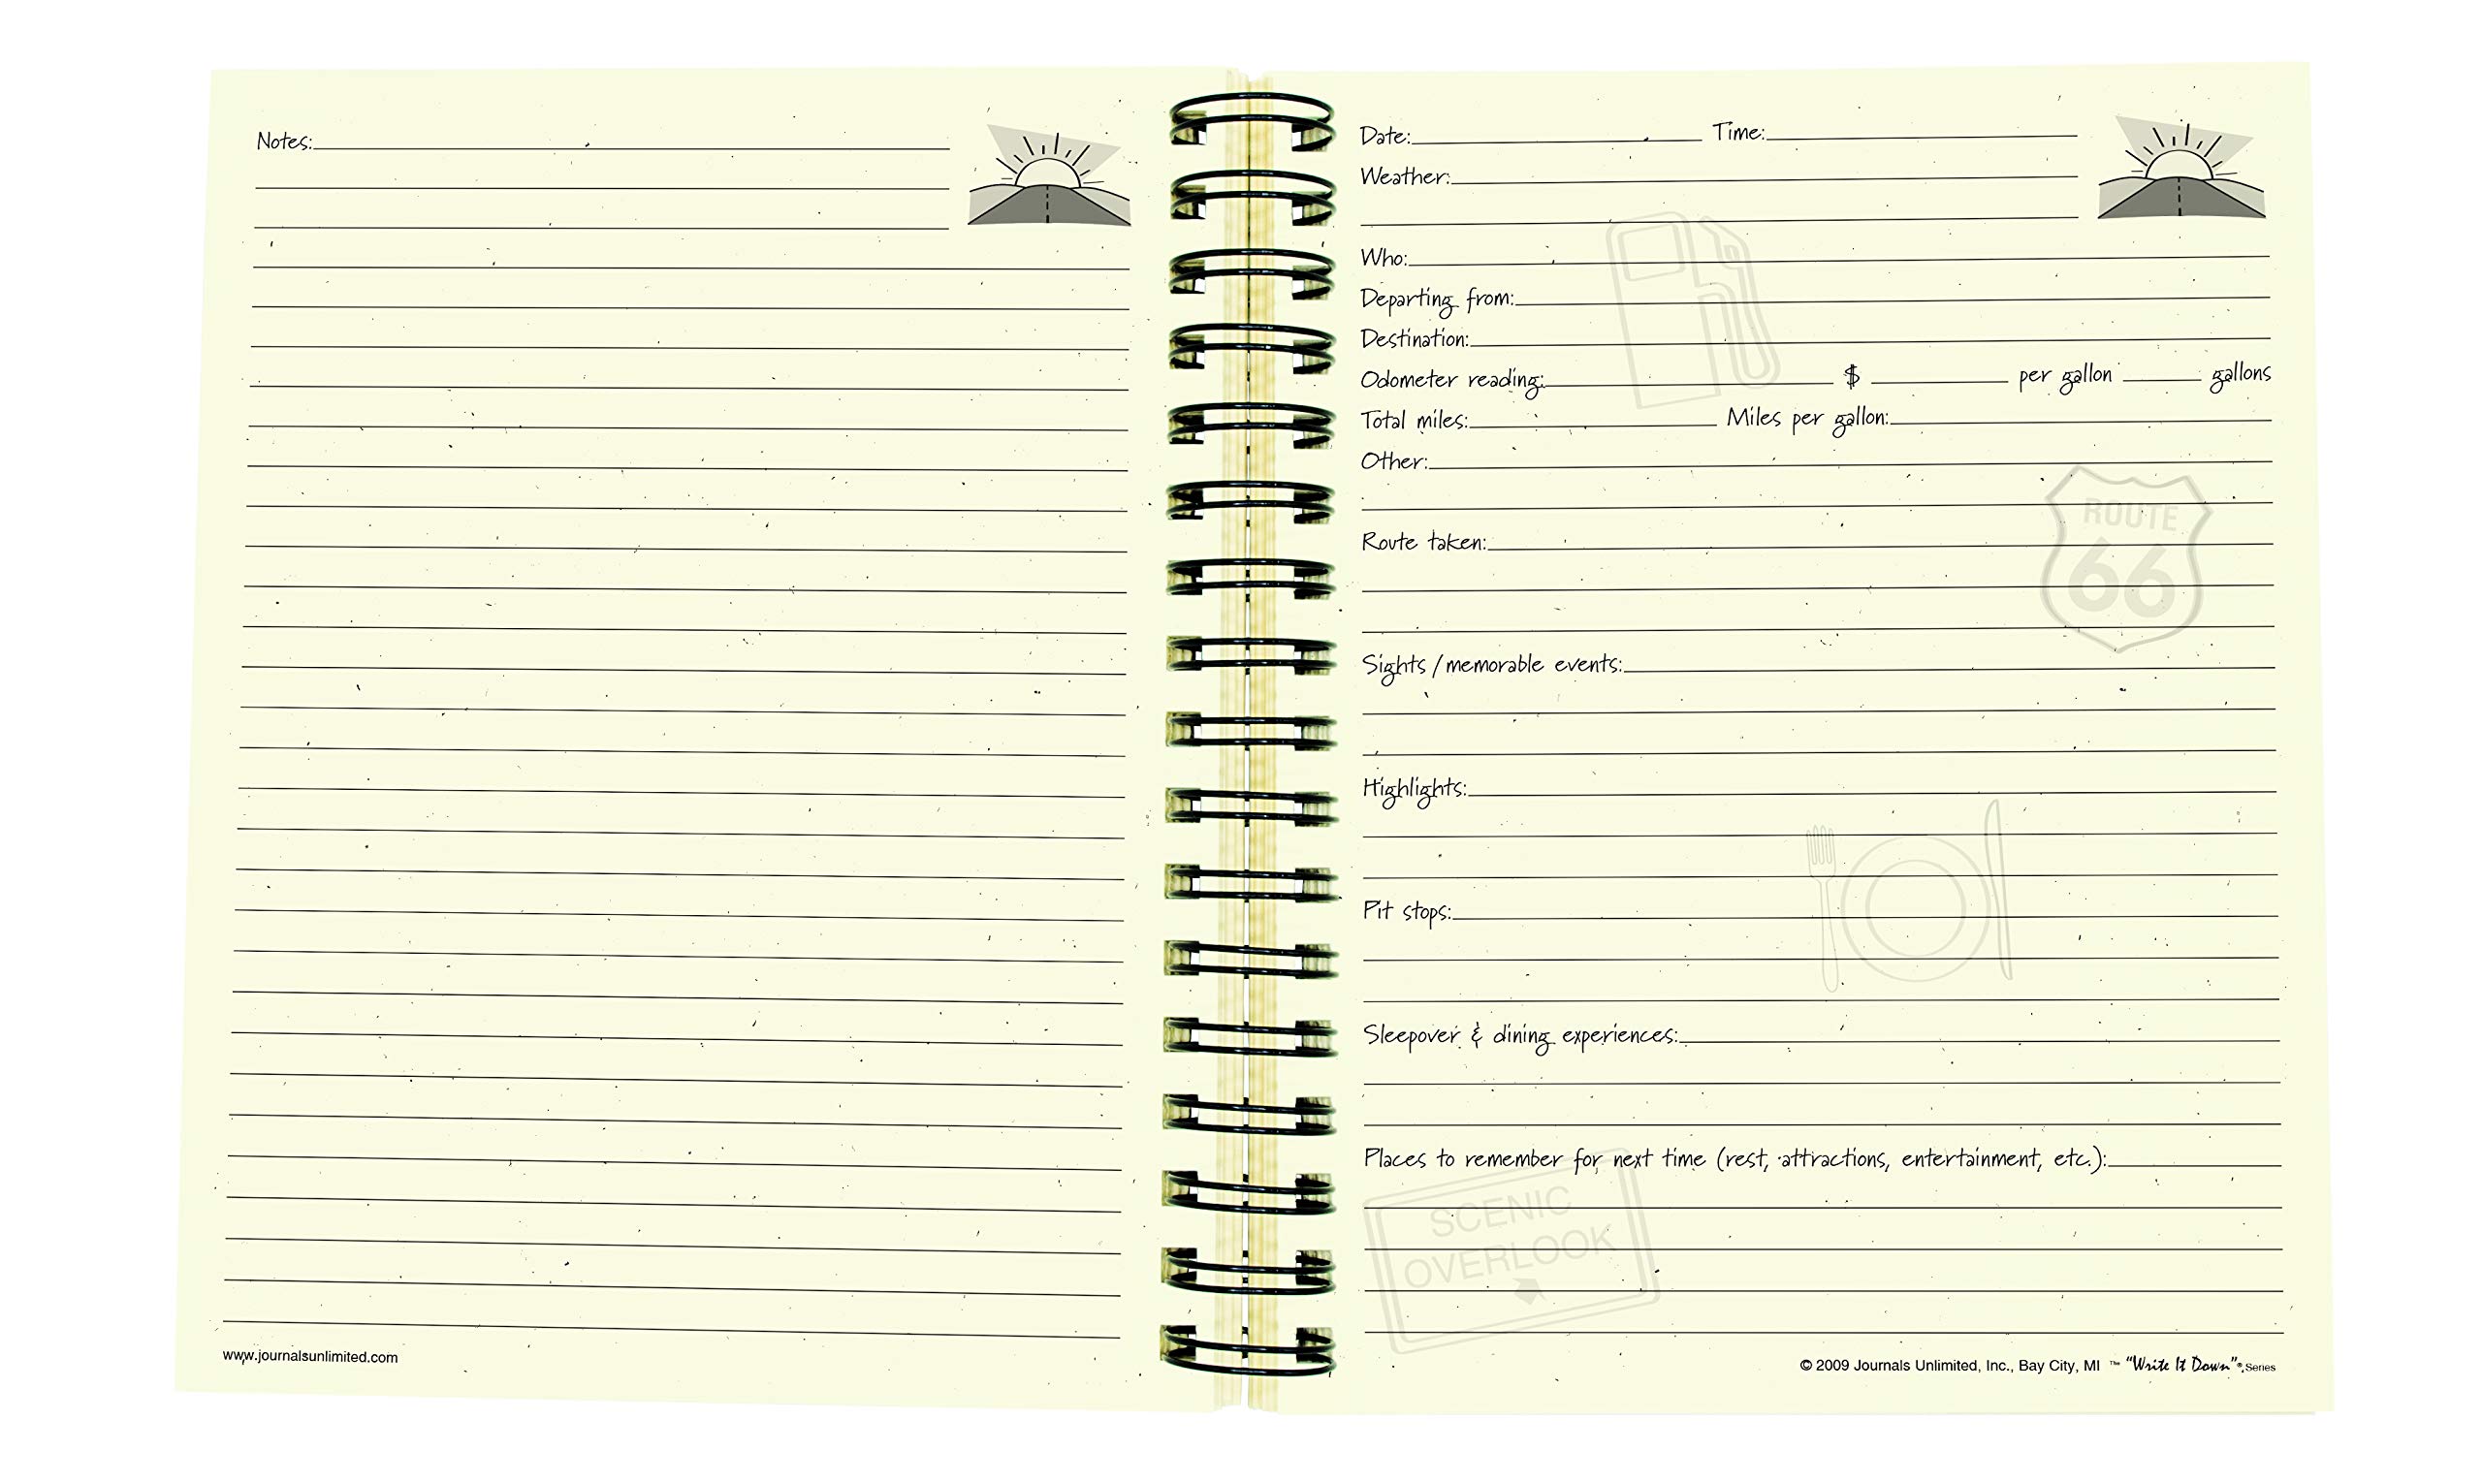 Notes:
www.journalsunlimited.com
Date: Time:
Weather:
Who:
Departing from:
Destination:
Odometer reading: $ per gallon gallons
Total miles: Miles per gallon:
Other:
ROUTE
66
Route taken:
Sights / memorable events:
Highlights:
Pit stops:
Sleepover & dining experiences:
Places to remember for next time (rest, attractions, entertainment, etc.):
SCENIC
OVERLOOK
© 2009 Journals Unlimited, Inc., Bay City, MI ™ "Write It Down"® Series